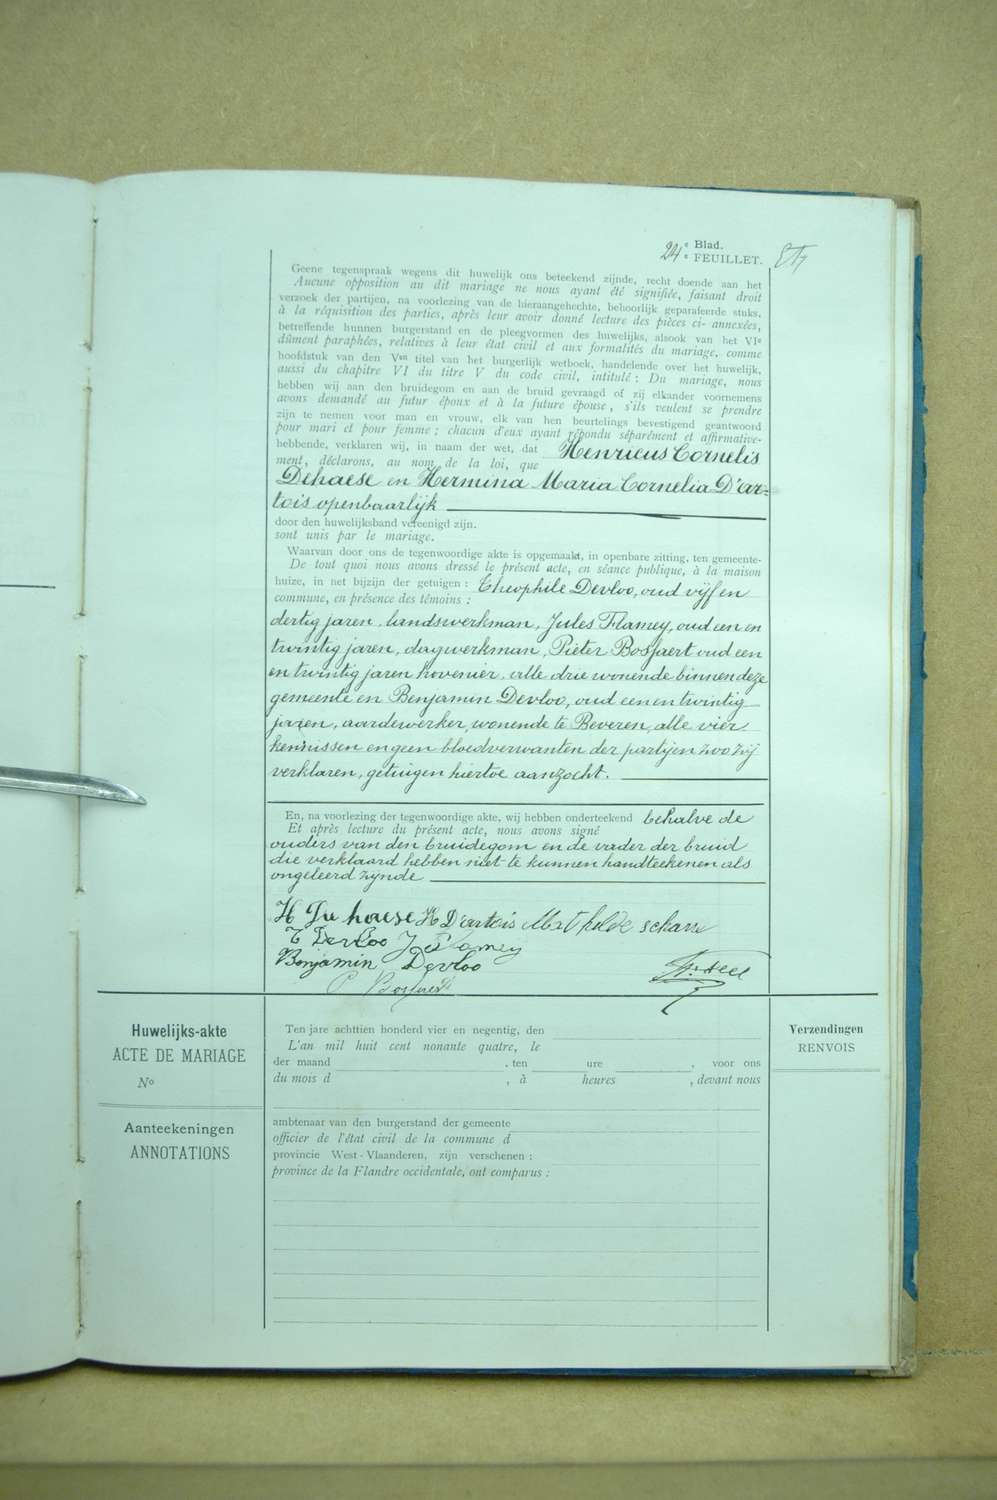 24e Blad.
e FEUILLET.
Geene tegenspraak wegens dit huwelijk ons beteekend zijnde, recht doende aan het
Aucune opposition au dit mariage ne nous ayant été signifiée, faisant droit
verzoek der partijen, na voorlezing van de hieraangehechte, behoorlijk geparafeerde stuks,
à la réquisition des parties, après leur avoir donné lecture des pièces ci-annexées,
betreffende hunnen burgerstand en de pleegvormen des huwelijks, alsook van het VIe
dûment paraphées, relatives à leur état civil et aux formalités du mariage, comme
hoofdstuk van den Ven titel van het burgerlijk wetboek, handelende over het huwelijk,
aussi du chapitre VI du titre V du code civil, intitulé : Du mariage, nous
hebben wij aan den bruidegom en aan de bruid gevraagd of zij elkander voornemens
avons demandé au futur époux et à la future épouse, s'ils veulent se prendre
zijn te nemen voor man en vrouw, elk van hen beurtelings bevestigend geantwoord
pour mari et pour femme ; chacun d'eux ayant répondu séparément et affirmative-
hebbende, verklaren wij, in naam der wet, dat Henricus Cornelis
ment, déclarons, au nom de la loi, que
Dehaese en Hermina Maria Cornelia D'ar=
tois openbaarlijk
door den huwelijksband vereenigd zijn.
sont unis par le mariage.
Waarvan door ons de tegenwoordige akte is opgemaakt, in openbare zitting, ten gemeente-
De tout quoi nous avons dressé le présent acte, en séance publique, à la maison
huize, in net bijzijn der getuigen : Theophile Devloo, oud vijf en
commune, en présence des témoins :
dertig jaren, landswerkman, Jules Flamey, oud een en
twintig jaren, dagwerkman, Pieter Bosfaert oud een
en twintig jaren hovenier, alle drie wonende binnen deze
gemeente en Benjamin Devloo, oud een en twintig
jaren, aardewerker, wonende te Beveren, alle vier
kennissen en geen bloedverwanten der partijen zoo zij
verklaren, getuigen hiertoe aanzocht.
En, na voorlezing der tegenwoordige akte, wij hebben onderteekend behalve de
Et après lecture du présent acte, nous avons signé
ouders van den bruidegom en de vader der bruid
die verklaard hebben niet te kunnen handteekenen als
ongeleerd zijnde
H De haese H D'artois Mathilde schare
T Devloo J Flamey
Benjamin Devloo
P Bosfaert
Huwelijks-akte
ACTE DE MARIAGE
No
Aanteekeningen
ANNOTATIONS
Ten jare achttien honderd vier en negentig, den
L'an mil huit cent nonante quatre, le
der maand , ten ure , voor ons
du mois d , à heures , devant nous
ambtenaar van den burgerstand der gemeente
officier de l'état civil de la commune d
provincie West-Vlaanderen, zijn verschenen :
province de la Flandre occidentale, ont comparus :
Verzendingen
RENVOIS